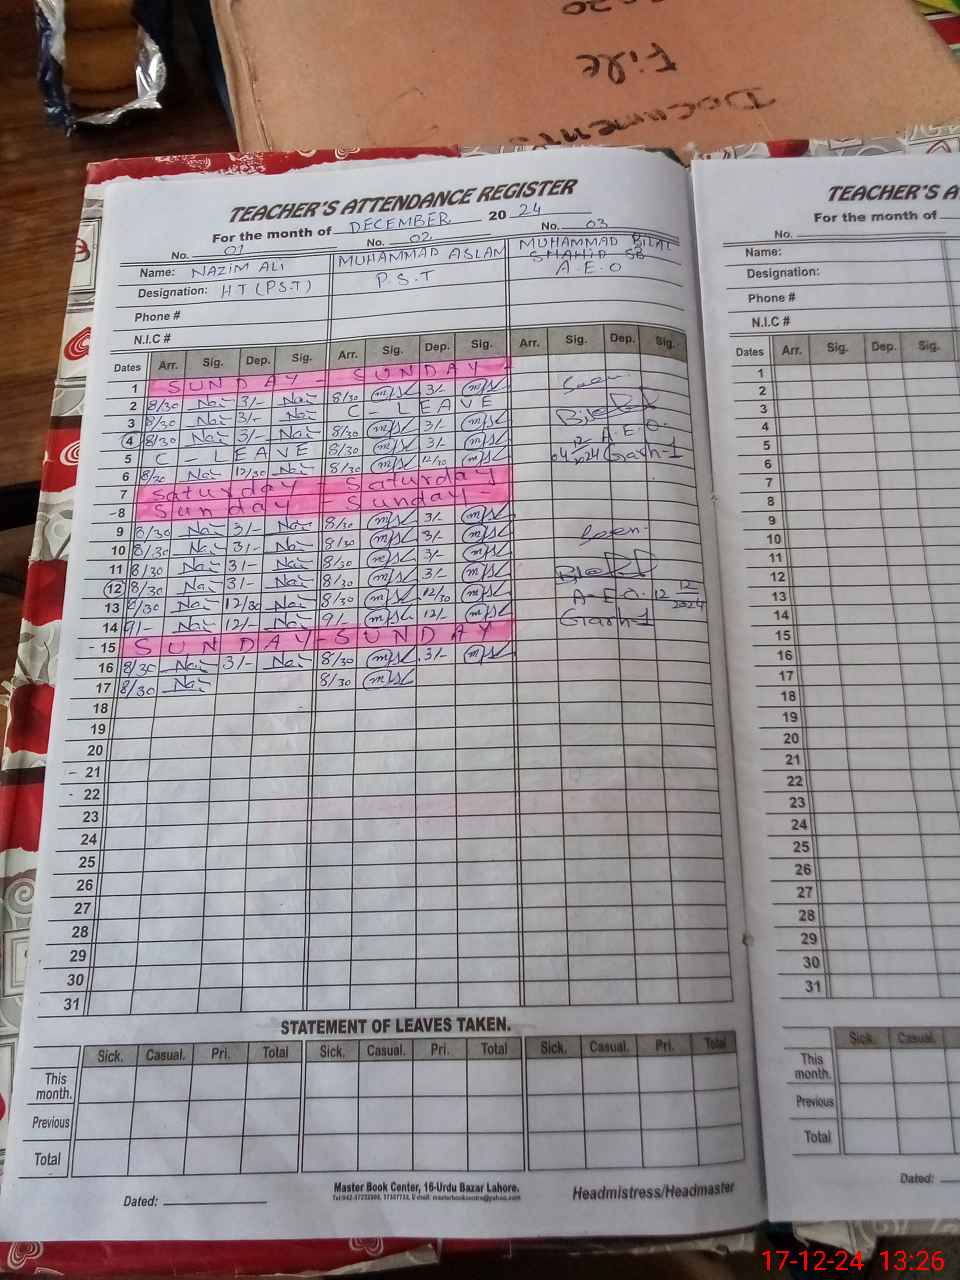 2020
File
Documents
TEACHER'S ATTENDANCE REGISTER
For the month of DECEMBER 20 24
No. 01 No. 02 No. 03
Name: NAZIM ALI MUHAMMAD ASLAM MUHAMMAD BILAL
SHAHID SB
Designation: HT (P.S.T) P.S.T A.E.O
Phone #
N.I.C #
Dates Arr. Sig. Dep. Sig. Arr. Sig. Dep. Sig. Arr. Sig. Dep. Sig.
1 SUNDAY - SUNDAY -
2 8/30 Nai 3/- Nai 8/30 3/- Seen.
3 8/30 Nai 3/- Nai C - LEAVE
4 8/30 Nai 3/- Nai 8/30 3/- A.E.O.
5 C - LEAVE 8/30 3/- 04 12 2024 Garh-1
6 8/30 Nai 12/30 Nai 8/30 12/30
7 Saturday Saturday
-8 Sunday - Sunday -
9 8/30 Nai 3/- Nai 8/30 3/-
10 8/30 Nai 3/- Nai 8/30 3/- Seen.
11 8/30 Nai 3/- Nai 8/30 3/-
12 8/30 Nai 3/- Nai 8/30 3/-
13 8/30 Nai 12/30 Nai 8/30 12/30 A-E.O. 12 12 2024
14 9/- Nai 12/- Nai 9/- 12/- Garh-1
- 15 SUNDAY - SUNDAY
16 8/30 Nai 3/- Nai 8/30 3/-
17 8/30 Nai 8/30
18
19
20
- 21
- 22
23
24
25
26
27
28
29
30
31
STATEMENT OF LEAVES TAKEN.
Sick. Casual. Pri. Total Sick. Casual. Pri. Total Sick. Casual. Pri. Total
This month.
Previous
Total
Master Book Center, 16-Urdu Bazar Lahore.
Dated: Headmistress/Headmaster
TEACHER'S A
For the month of
No.
Name:
Designation:
Phone #
N.I.C #
Dates Arr. Sig. Dep. Sig.
1
2
3
4
5
6
7
8
9
10
11
12
13
14
15
16
17
18
19
20
21
22
23
24
25
26
27
28
29
30
31
Sick. Casual.
This month.
Previous
Total
Dated:
17-12-24 13:26